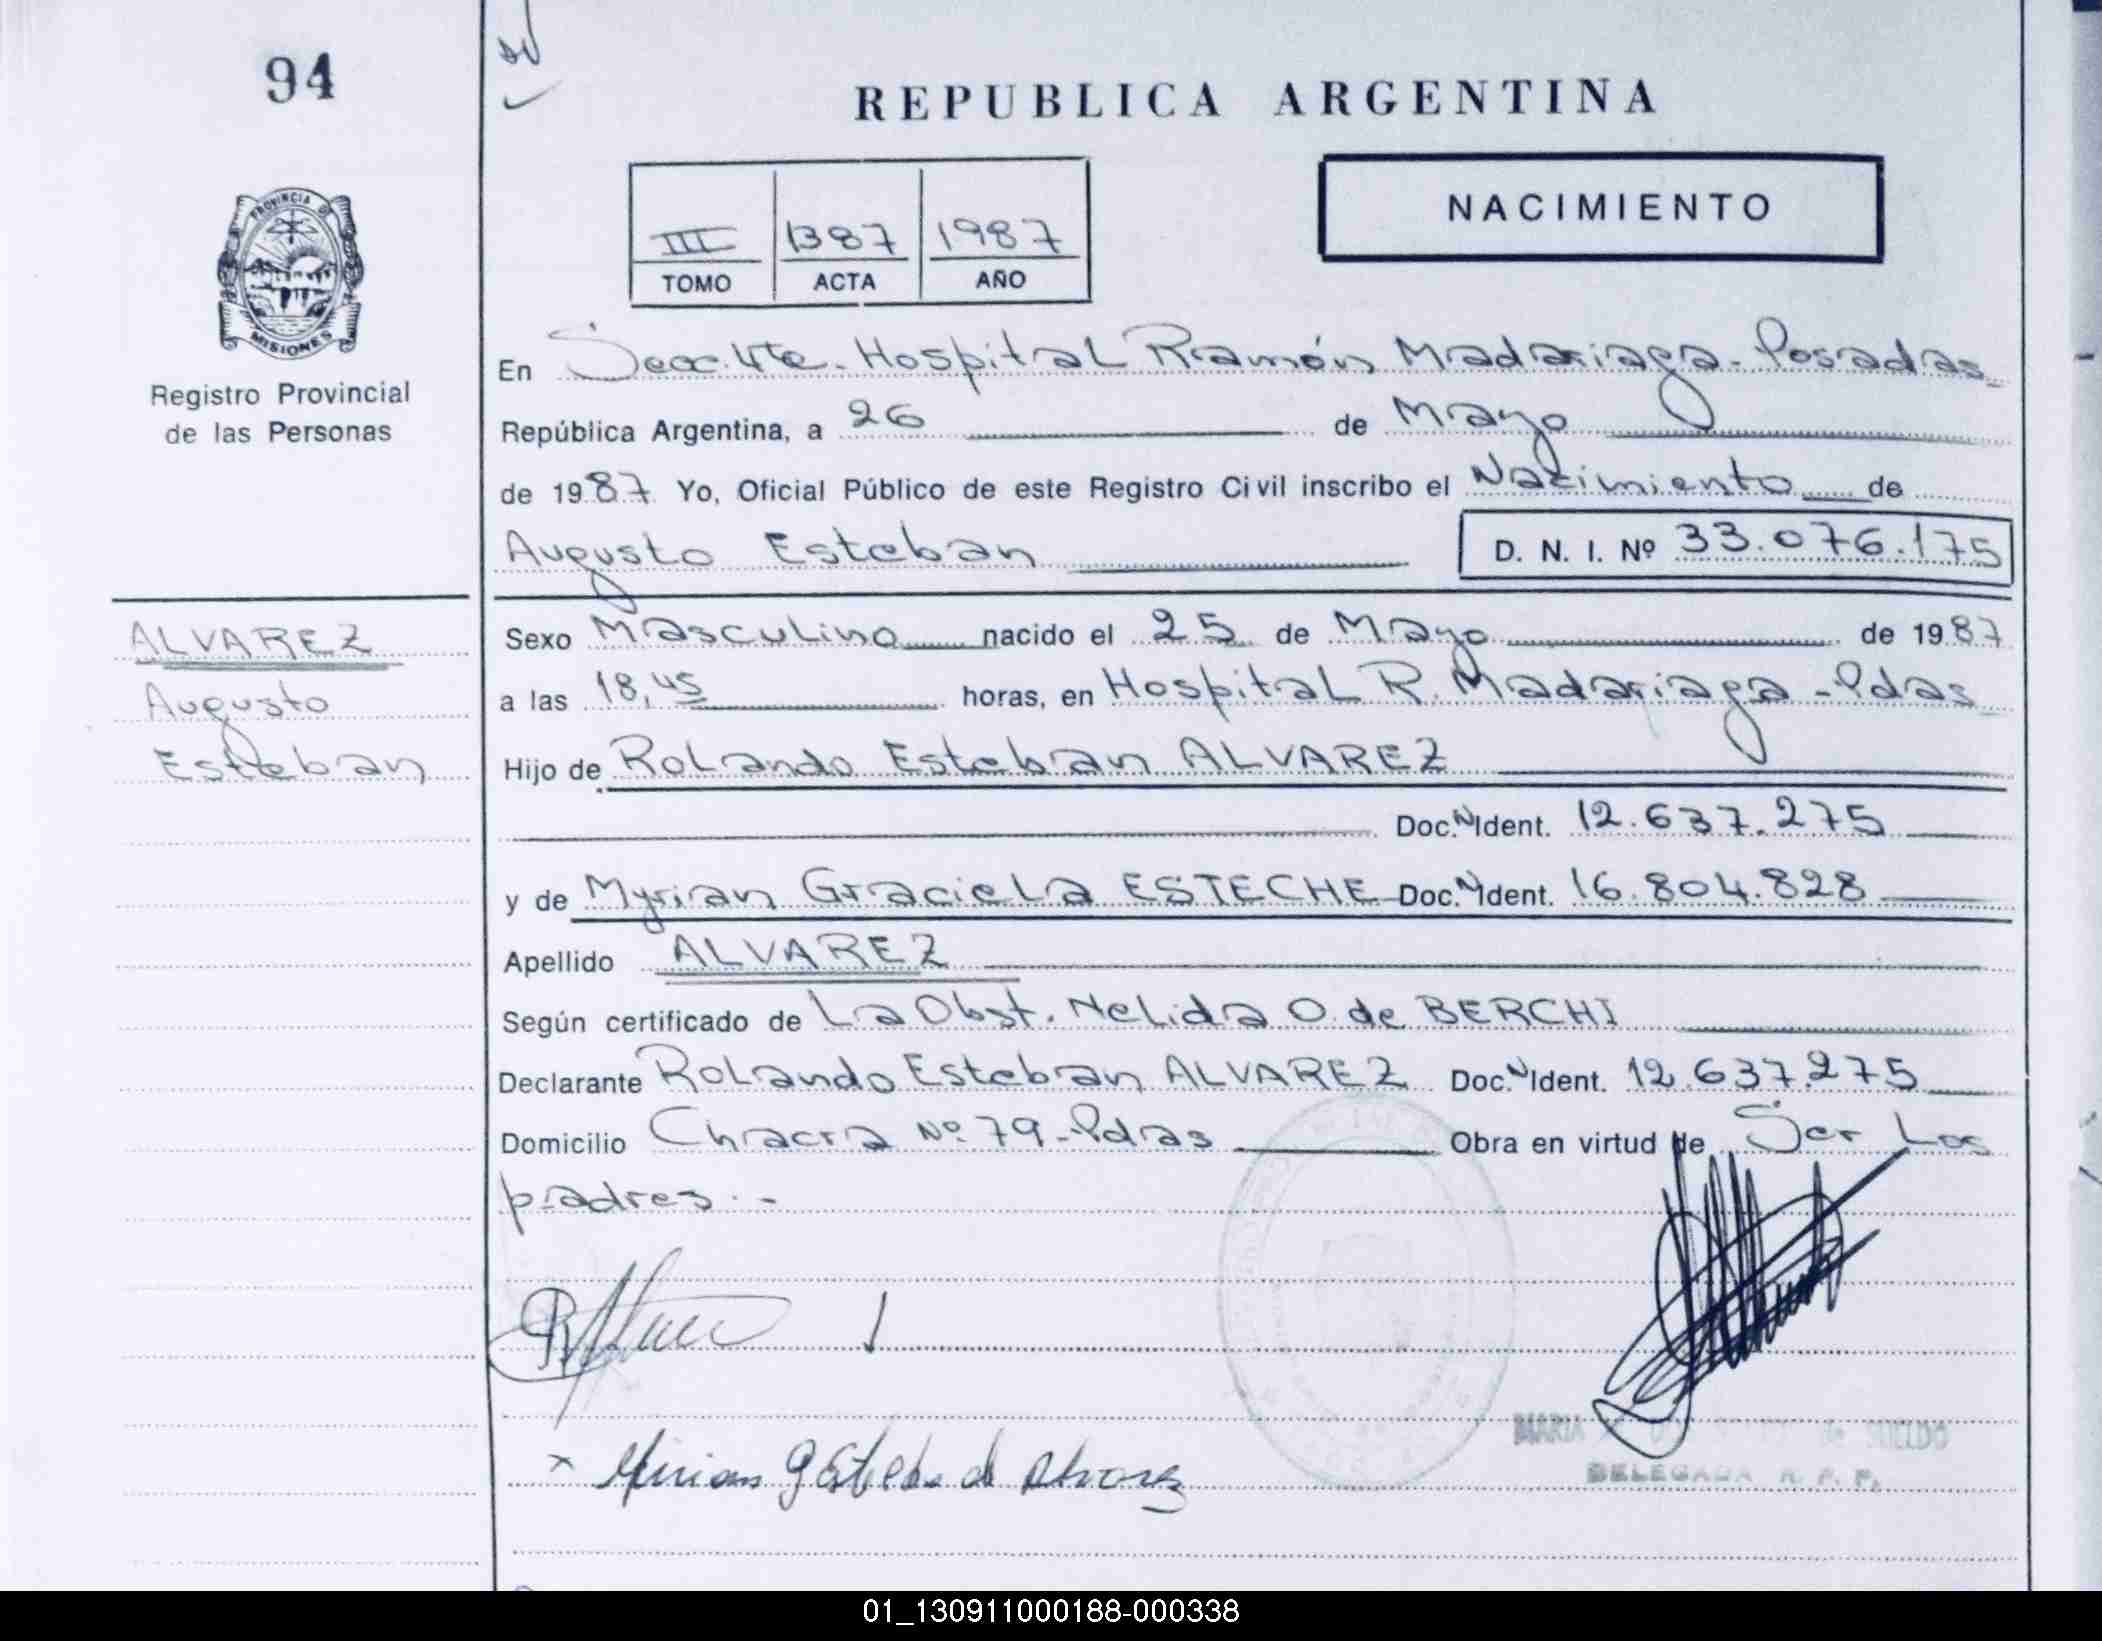 94
REPUBLICA ARGENTINA
NACIMIENTO
III 1387 1987
TOMO ACTA AÑO
PROVINCIA DE
MISIONES
Registro Provincial
de las Personas
En Secc. 4te. Hospital Ramón Madariaga - Posadas
República Argentina, a 26 de Mayo
de 1987 Yo, Oficial Público de este Registro Civil inscribo el Nacimiento de
Augusto Esteban D. N. I. Nº 33.076.175
ALVAREZ
Augusto
Esteban
Sexo Masculino nacido el 25 de Mayo de 1987
a las 18,45 horas, en Hospital R. Madariaga - Pdas
Hijo de Rolando Esteban ALVAREZ
Doc.N Ident. 12.637.275
y de Myrian Graciela ESTECHE Doc.N Ident. 16.804.828
Apellido ALVAREZ
Según certificado de La Obst. Nelida O. de BERCHI
Declarante Rolando Esteban ALVAREZ Doc.N Ident. 12.637.275
Domicilio Chacra Nº 79 - Pdas Obra en virtud de Ser Los
padres.-
MARIA de SUELDO
DELEGADA R. P. P.
x Mirian G Esteche de Alvarez
01_130911000188-000338